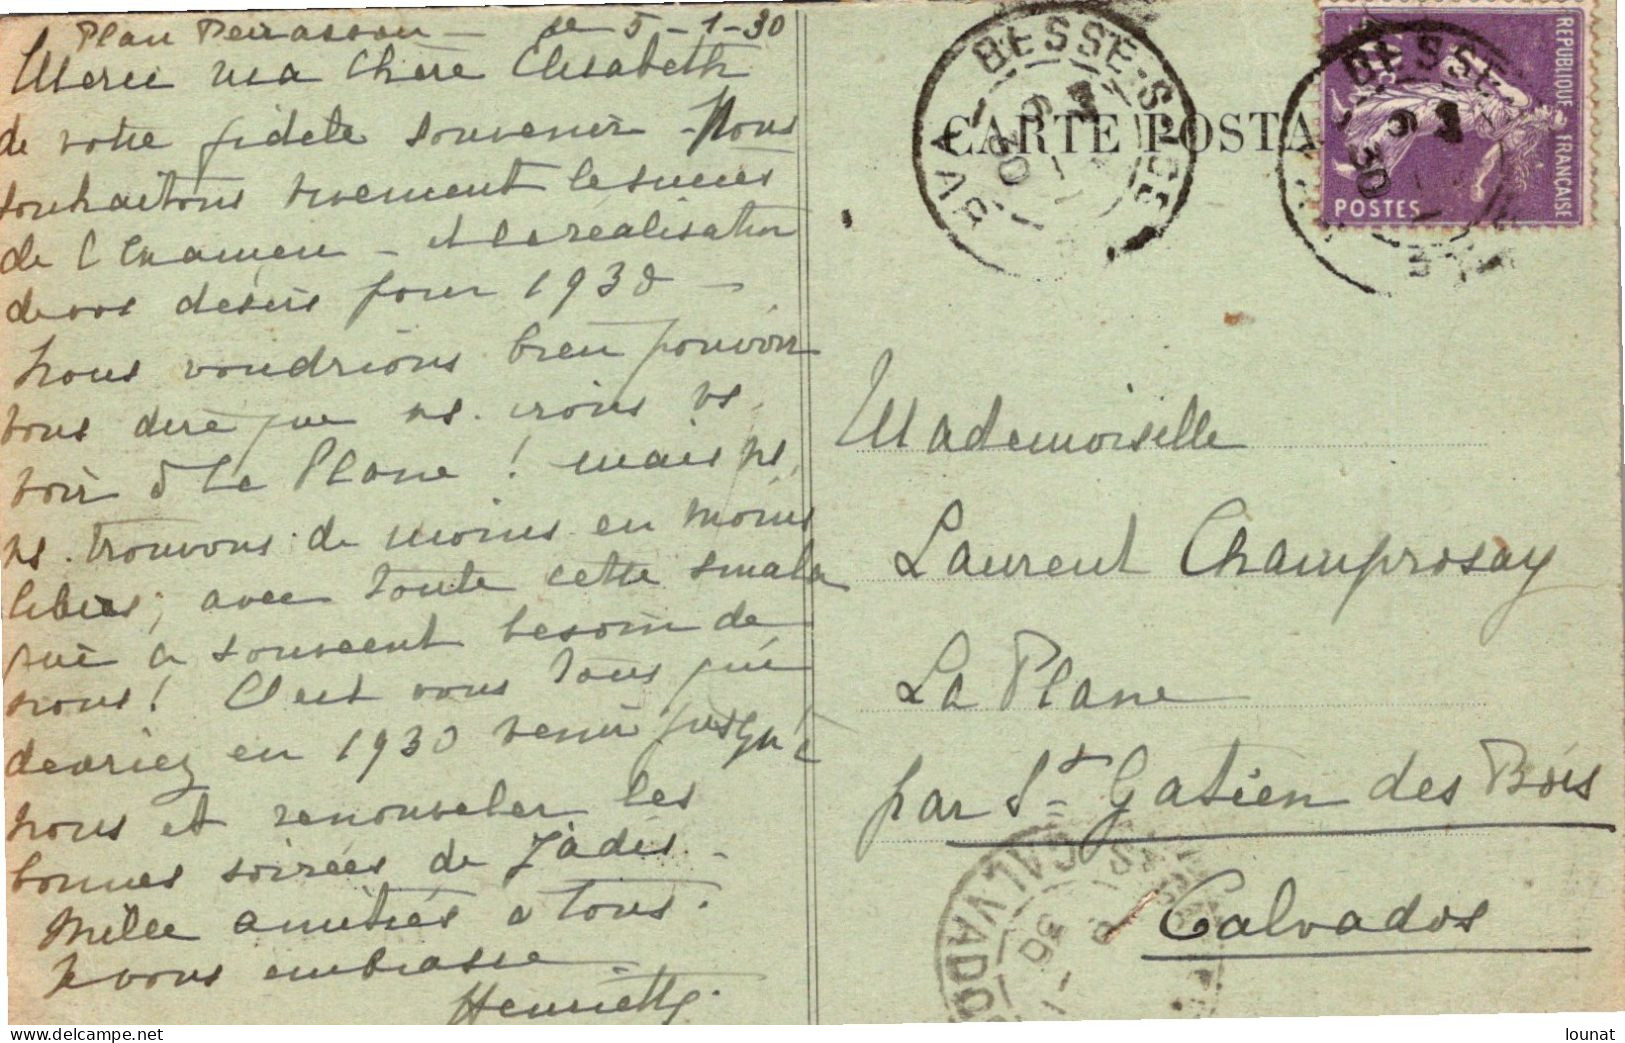 Plan Peirasson - le 5-1-30
Merci ma chère Elisabeth
de votre fidèle souvenir - Nous
souhaitons vivement le succès
de l'Examen - et la réalisation
de vos désirs pour 1930 -
Nous voudrions bien pouvoir
vous dire que ns. irons vs.
voir à la Plane ! mais ns.
ns. trouvons de moins en moins
libres, avec toute cette smala
qui a souvent besoin de
nous ! C'est vous tous qui
devriez en 1930 venir jusqu'à
nous et renouveler les
bonnes soirées de Jadis -
Mille amitiés a tous.
Je vous embrasse
Henriette.
CARTE POSTA
BESSE-S-ISSOLE
VAR
REPUBLIQUE FRANÇAISE
POSTES
BESSE
30
Mademoiselle
Laurent Champrosay
La Plane
par St Gatien des Bois
Calvados
CALVADOS
30
lounat